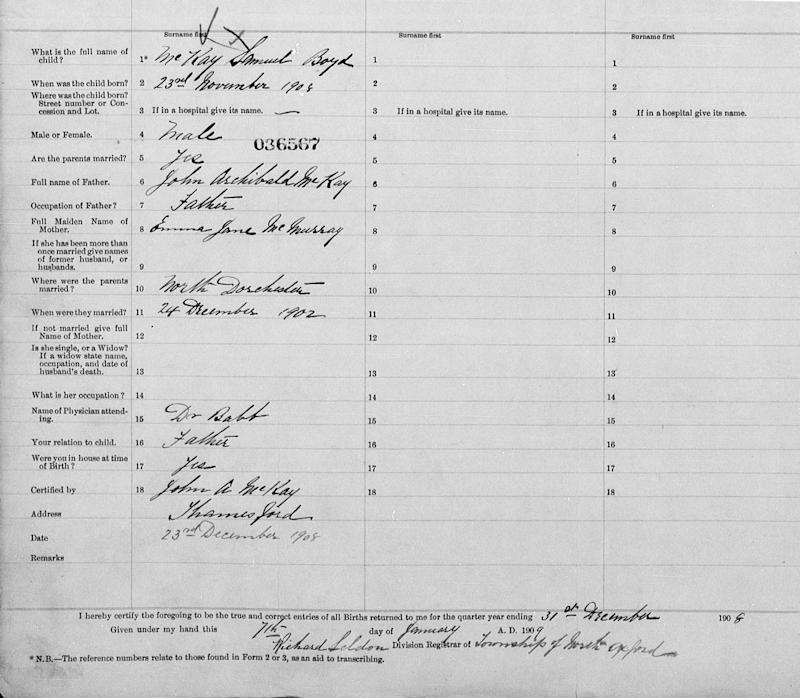 Surname first Surname first Surname first
What is the full name of
child? 1* McKay Samuel Boyd 1 1
When was the child born? 2 23rd November 1908 2 2
Where was the child born?
Street number or Con-
cession and Lot. 3 If in a hospital give its name. — 3 If in a hospital give its name. 3 If in a hospital give its name.
Male or Female. 4 Male 4 4
036567
Are the parents married? 5 Yes 5 5
Full name of Father. 6 John Archibald McKay 6 6
Occupation of Father? 7 Father 7 7
Full Maiden Name of
Mother. 8 Emma Jane McMurray 8 8
If she has been more than
once married give names
of former husband, or
husbands. 9 9 9
Where were the parents
married? 10 North Dorchester 10 10
When were they married? 11 24 December 1902 11 11
If not married give full
Name of Mother. 12 12 12
Is she single, or a Widow?
If a widow state name,
occupation, and date of
husband's death. 13 13 13
What is her occupation? 14 14 14
Name of Physician attend-
ing. 15 Dr Babb 15 15
Your relation to child. 16 Father 16 16
Were you in house at time
of Birth? 17 Yes 17 17
Certified by 18 John A McKay 18 18
Address Thamesford
Date 23rd December 1908
Remarks
I hereby certify the foregoing to be the true and correct entries of all Births returned to me for the quarter year ending 31st December 1908
Given under my hand this 7th day of January A. D. 1909
Richard Seldon Division Registrar of Township of North Oxford
* N.B.—The reference numbers relate to those found in Form 2 or 3, as an aid to transcribing.